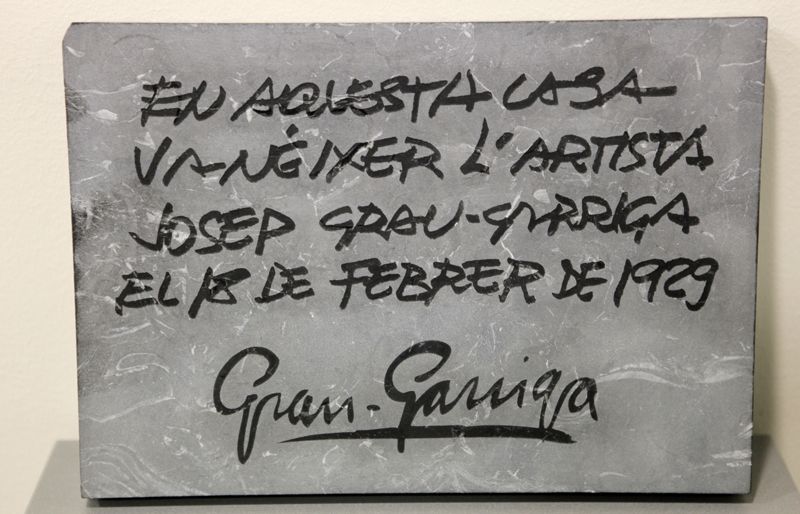 EN AQUESTA CASA
VA NÉIXER L'ARTISTA
JOSEP GRAU-GARRIGA
EL 18 DE FEBRER DE 1929
Grau-Garriga